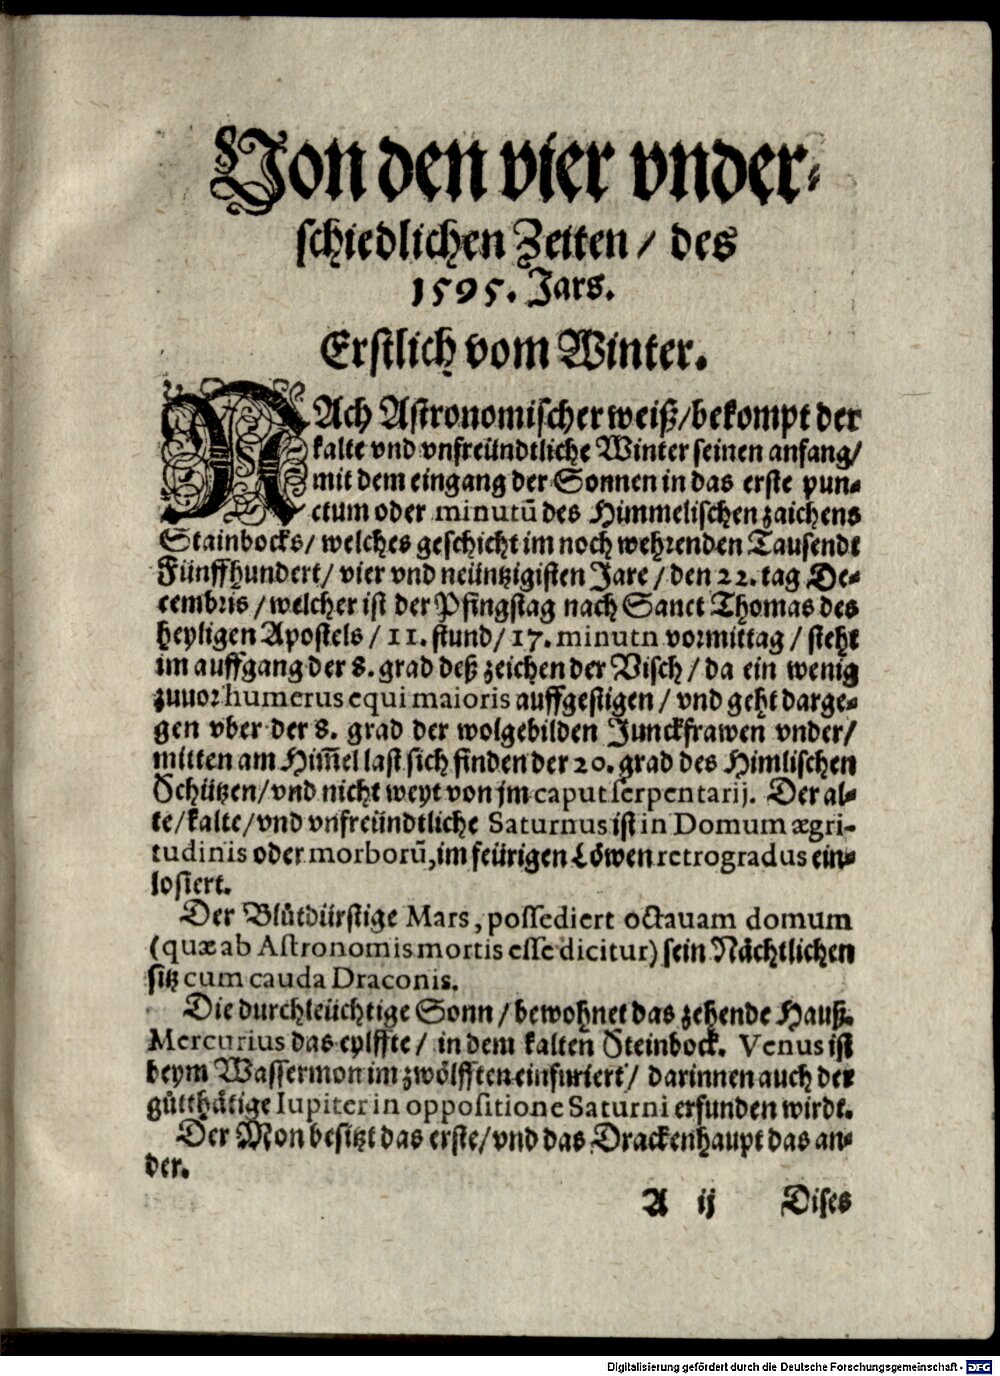 Von den vier vnder⸗
schiedlichen Zeiten / des
1595. Jars.
Erstlich vom Winter.
NAch Astronomischer weiß/bekompt der
kalte vnd vnfreündtliche Winter seinen anfang/
mit dem eingang der Sonnen in das erste pun⸗
ctum oder minutū des Himmelischen zaichens
Stainbocks/ welches geschicht im noch wehrenden Tausendt
Fünffhundert/ vier vnd neüntzigisten Jare / den 22. tag De⸗
cembris / welcher ist der Pfingstag nach Sanct Thomas des
heyligen Apostels / 11. stund/ 17. minutn vormittag / steht
im auffgang der 8. grad deß zeichen der Visch / da ein wenig
zuuor humerus equi maioris auffgestigen / vnd geht darge⸗
gen vber der 8. grad der wolgebilden Junckfrawen vnder/
mitten am Him̄el last sich finden der 20. grad des Himlischen
Schützen/ vnd nicht weyt von jm caput serpentarij. Der al⸗
te/ kalte/ vnd vnfreündtliche Saturnus ist in Domum ægri-
tudinis oder morborū, im feürigen Löwen retrogradus ein⸗
losiert.
Der Blůtdürstige Mars, possediert octauam domum
(quæ ab Astronomis mortis esse dicitur) sein Nächtlichen
sitz cum cauda Draconis.
Die durchleüchtige Sonn / bewohnet das zehende Hauß.
Mercurius das eylffte / in dem kalten Steinbock. Venus ist
beym Wassermon im zwölfften einfuriert / darinnen auch der
gůtthätige Iupiter in oppositione Saturni erfunden wirdt.
Der Mon besitzt das erste/ vnd das Drackenhaupt das an⸗
der.
A ij Dises
Digitalisierung gefördert durch die Deutsche Forschungsgemeinschaft - DFG